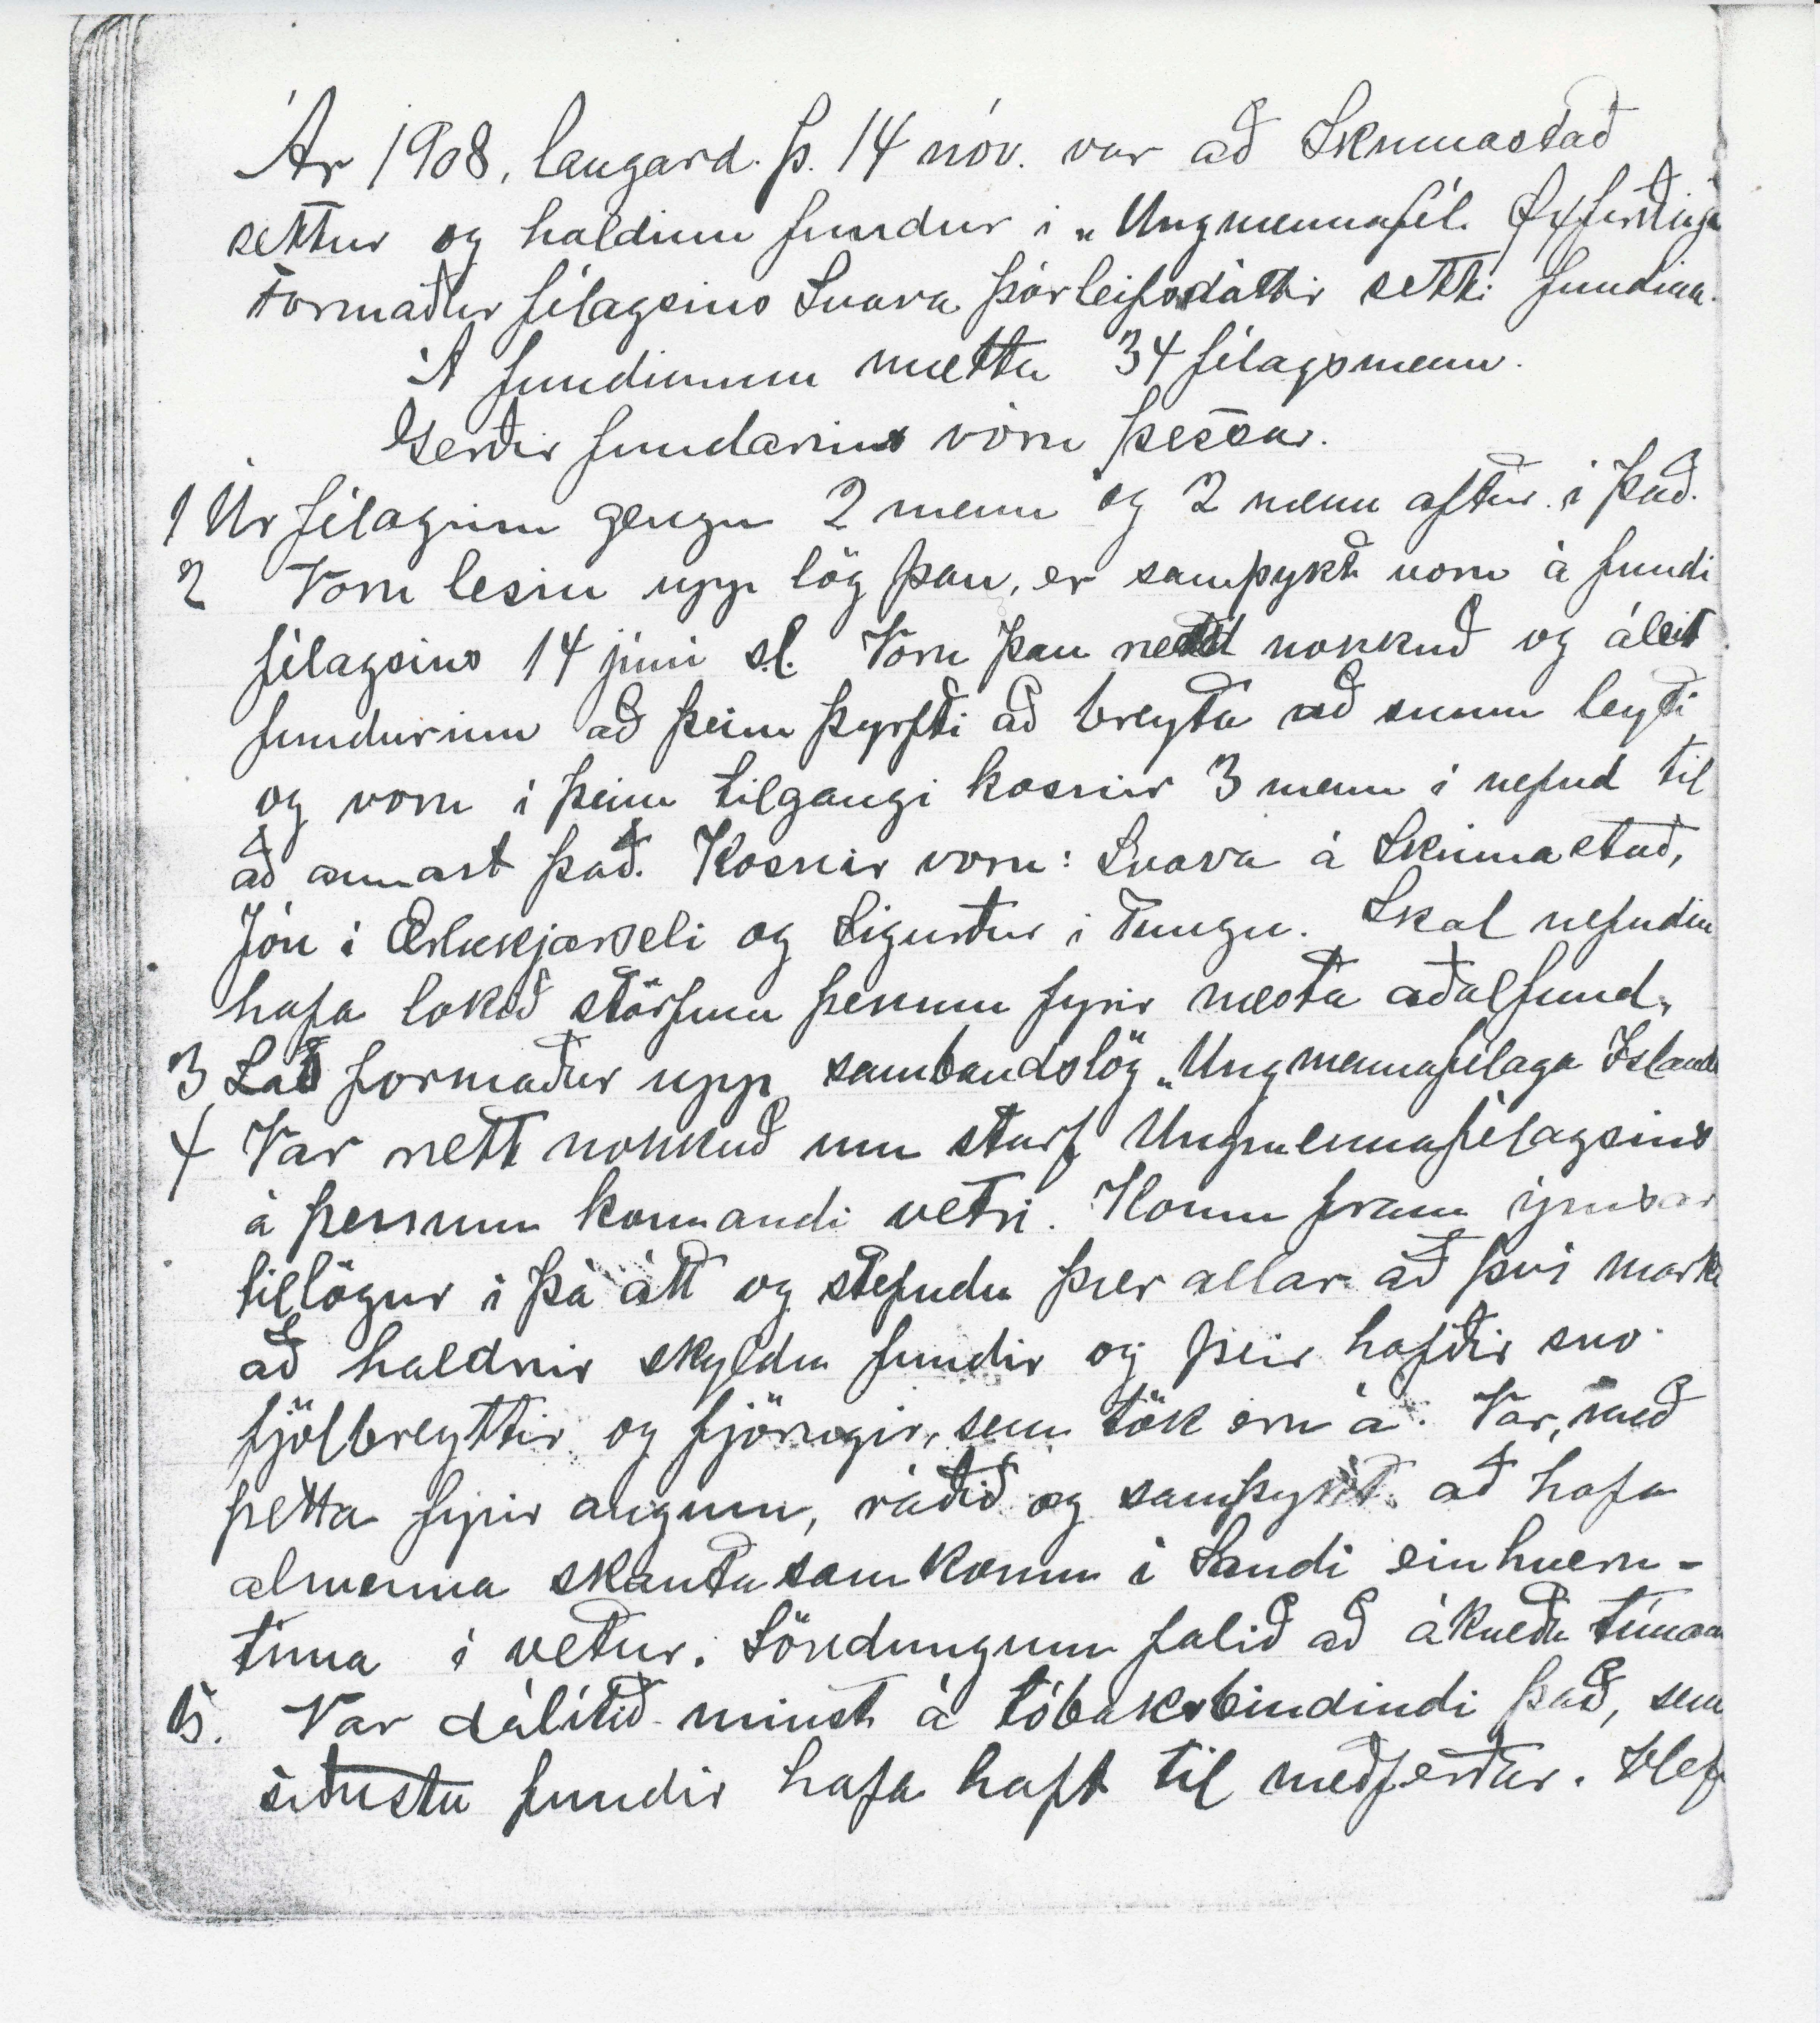 Ár 1908, laugard. þ. 14 nóv. var að Skinnastað
settur og haldinn fundur í „Ungmennafél. Öxfirðinga
Formaður félagsins Svava Þórleifsdóttir setti fundinn.
Á fundinum mættu 34 félagsmenn.
Gerðir fundarins vóru þessar.
1 Úr félaginu gengu 2 menn og 2 menn aftur í það.
2 Voru lesin upp lög þau, er samþykt voru á fundi
félagsins 14 júní s.l. Vóru þau rædd nokkuð og áleit
fundurinn að þeim þyrfti að breyta að sumu leyti
og voru í þeim tilgangi kosnir 3 menn í nefnd til
að annast það. Kosnir voru: Svava á Skinnastað,
Jón í Ærlækjarseli og Sigurður í Tungu. Skal nefndin
hafa lokið störfum þessum fyrir næsta aðalfund.
3 Las formaður upp sambandslög „Ungmennafélaga Íslands
4 Var rætt nokkuð um starf Ungmennafélagsins
á þessum komandi vetri. Komu fram ýmsar
tillögur í þá átt og stefndu þær allar að því marki
að haldnir skyldu fundir og þeir hafðir svo
fjölbreyttir og fjörugir, sem tök eru á. Var, með
þetta fyrir augum, ráðið og samþykt að hafa
almenna skautasamkomu í Sandi einhvern-
tíma í vetur. Söndungum falið að ákveða tímann
5. Var dálítið minst á tóbaksbindindi það, sem
síðustu fundir hafa haft til meðferðar. Hef